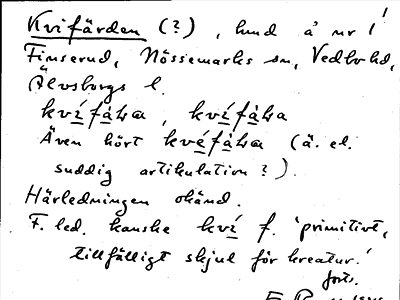 Kvifärden (?), hund å nr 1
Finserud, Nössemarks sn, Vedbo hd,
Älvsborgs l.
kvífàɫɹa, kvífàɫɹa
Även hört kvéfàɫɹa (ä. el.
suddig artikulation?).
Härledningen okänd.
F. led. kanske kví f. 'primitivt,
tillfälligt skjul för kreatur.'
forts.